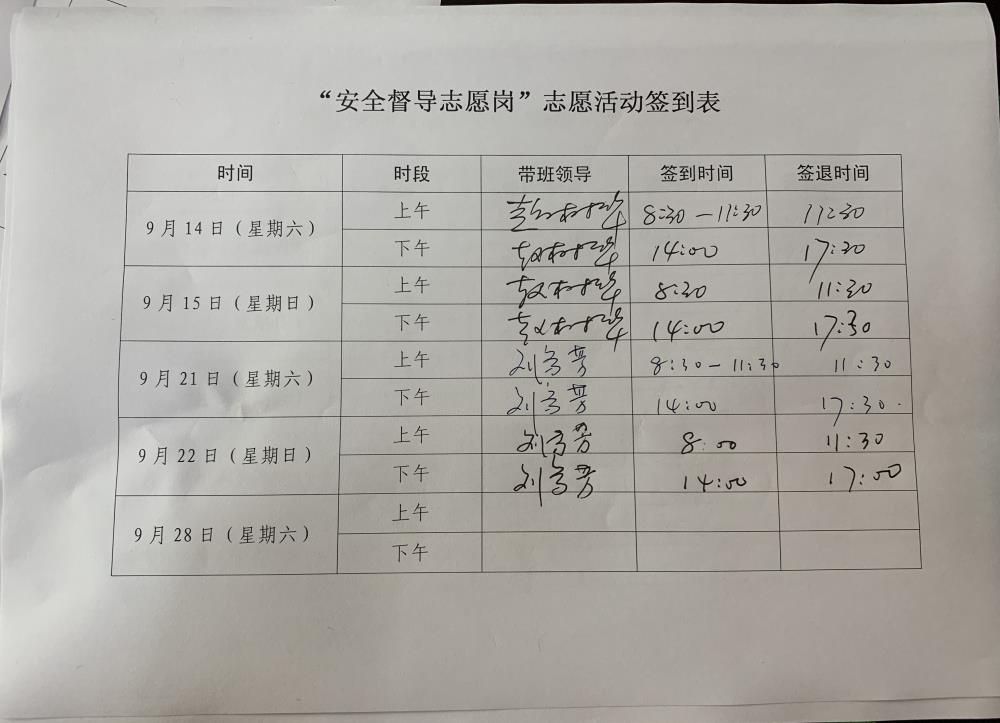 “安全督导志愿岗”志愿活动签到表
时间 时段 带班领导 签到时间 签退时间
9月14日（星期六） 上午 8:30-11:30 11:30
下午 14:00 17:30
9月15日（星期日） 上午 8:30 11:30
下午 14:00 17:30
9月21日（星期六） 上午 刘芳 8:30-11:30 11:30
下午 刘芳 14:00 17:30.
9月22日（星期日） 上午 刘芳 8:00 11:30
下午 刘芳 14:00 17:00
9月28日（星期六） 上午
下午